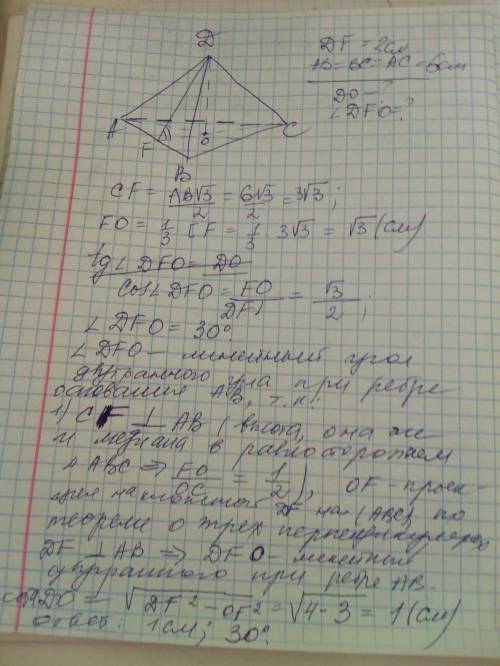 D
DF = 2см
AB = BC = AC = 6см
DO — ?
∠DFO = ?
A
O
C
F
B
CF = AB√3/2 = 6√3/2 = 3√3;
FO = 1/3 CF = 1/3 3√3 = √3 (см)
tg∠DFO = DO
Cos∠DFO = FO/DF = √3/2;
∠DFO = 30°.
∠DFO — линейный угол
двугранного угла при ребре
основания AB, т.к.
1) CF ⊥ AB (высота, она же
и медиана в равностороннем
△ABC ⇒ FO/OC = 1/2), OF - проек-
ция наклонной DF на (ABC) по
теореме о трех перпендикулярах
DF ⊥ AB ⇒ DFO - линейный
двугранного при ребре AB.
DO = √DF² - OF² = √4 - 3 = 1 (см)
ответ: 1см; 30°.